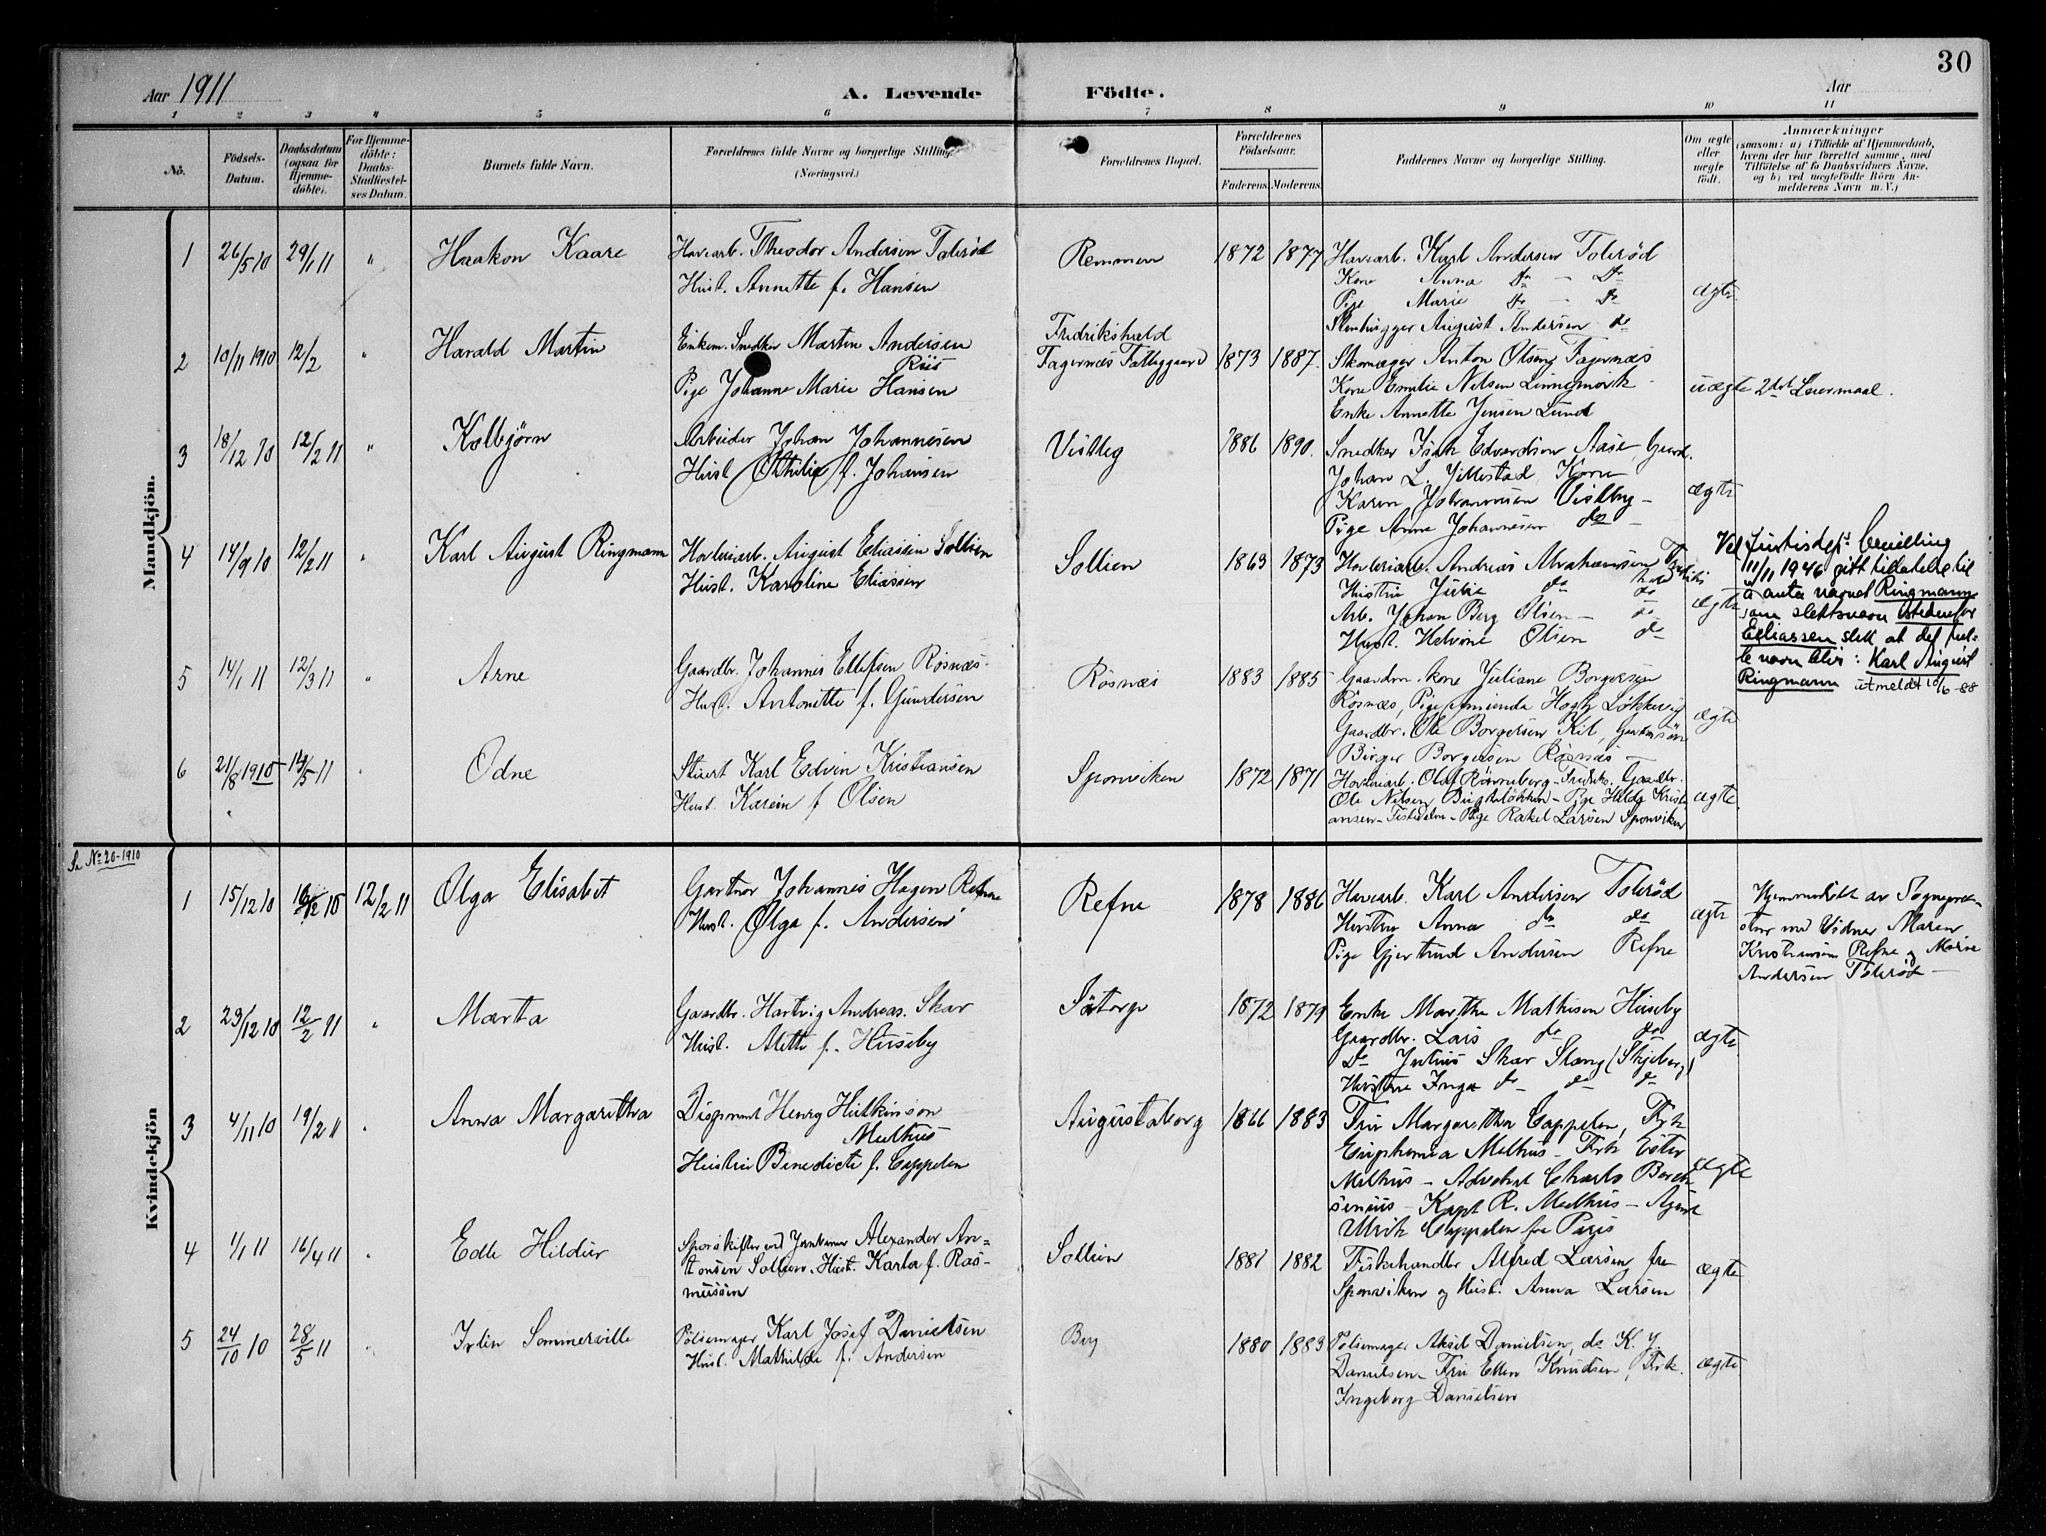 30
Aar 1911 A. Levende Födte. Aar
1 2 3 4 5 6 7 8 9 10 11
No. Födsels-Datum. Daabsdatum (ogsaa for Hjemme-döbte). For Hjemme-döbte: Daabs-Stadfæstel-ses Datum. Barnets fulde Navn. Forældrenes fulde Navne og borgerlige Stilling. (Næringsvei.) Forældrenes Bopæl. Forældrenes Födselsaar. Faderens. Moderens. Faddernes Navne og borgerlige Stilling. Om ægte eller uægte födt. Anmærkninger
(saasom: a) i Tilfælde af Hjemmedaab,
hvem der har forrettet samme, med
Tilföielse af to Daabsvidners Navne,
og b) ved uægtefödte Börn An-
melderens Navn m. V.)
Mandkjön.
1 26/5 10 29/1 11 " Haakon Kaare Havearb. Theodor Andersen Tolerød Remmen 1872 1877 Havearb. Karl Andersen Tolerød
Hust. Annette f. Hansen Kone Anna do - Do
Pige Marie do - do ægte
Stenhugger August Andersen do
2 10/11 1910 12/2 " Harald Martin Enkem. Snedker Martin Andersen Riis Fredrikshald
Fagernæs Fattiggaard 1873 1887 Skomager Anton Olsen Fagernæs
Pige Johanne Marie Hansen Kone Emilie Nilsen uægte 2det Leiermaal.
Enke Annette Jensen Lund
3 18/12 10 12/2 11 " Kolbjørn Arbeider Johan Johannesen Vistbeg 1886 1890. Snedker Isak Edvardsen Aase, Gaard.
Hust. Othilie f. Johansen Johan L. Kone
Karen Johannesen Vistby - ægte
Pige Anna Johannesen do -
4 14/9 10 12/2 11 " Karl August Ringmann Høvleriarb. August Eliassen Sollien Sollien 1863 1873 Høvleriarb. Andreas Abrahamsen Fredriks
hald
Hust. Karoline Eliassen Hustru Julie do do
Arb. Johan Berg Olsen - do ægte
Hust. Helvine Olsen do
Ved Justisdep.s bevilling
11/11 1946 gitt tillatelse til
å anta navnet Ringmann
som slektsnavn istedenfor
Eliassen slik at det ful-
le navn blir: Karl August
Ringmann utmeldt 10/6-88
5 14/1 11 12/3 11 " Arne Gaardbr. Johannes Ellefsen Røsnæs Røsnæs 1883 1885 Gaardm. kone Juliane Borgersen
Hust. Antonette f. Gundersen Røsnæs, Pige Løkkevig
Gaardbr. Ole Borgersen ægte
Birger Borgersen Røsnæs -
6 21/8 1910 14/5 11 " Odne Stuert Karl Edvin Kristiansen Sponviken 1872 1871 Høvleriarb. Olaf Rønneberg - Fredriks. Gaardbr.
Hust. Karein f. Olsen Ole Nilsen - Pige Hilda Kristi-
ansen - Tistedalen - Pige Rakel Larsen Sponviken ægte
Kvindekjön
Se No 26-1910
1 15/12 10 16/12 10 12/2 11 Olga Elisabet Gartner Johannes Hagen Refne Refne 1878 1886 Havearb. Karl Andersen Tolerød
Hust. Olga f. Andersen Hustru Anna do do ægte
Pige Gjertrud Andersen Refne
Hjemmedöbt av Sognepræ-
sten med Vidner Maren
Kristiansen Refne og Marie
Andersen Tolerød -
2 29/12 10 12/2 11 " Marta Gaardbr. Hartvig Andreas. Skar Sötorp 1872 1879 Enke Marthe Mathisen Huseby
Hust. Mette f. Huseby Gaardbr. Lars do do ægte
Do Julius Skar Stang (Skjeberg)
Hustru Inga do do do
3 4/11 10 19/2 11 " Anna Margaretha Disponent Henry Hutkinson Melhus Augustaborg 1866 1883 Fru Margaretha Cappelen, Frk
Hustru Benedicte f. Cappelen Euphemia Melhus - Frk Ester
Melhus - Advokat Charls Borch-
senius - Kapt R. Melhus - Agent ægte
Ulrik Cappelen fra Paris
4 1/1 11 16/4 11 " Edle Hildur Sporskifter ved Jernbanen Alexander An-
tonsen Sollien. Hust. Karla f. Ras-
mussen Sollien 1881 1882 Fiskehandler Alfred Larsen fra
Sponviken og Hust. Anna Larsen ægte
5 24/10 10 28/5 11 " Irlin Sommerville Pölsemager Karl Josef Danielsen Berg 1880 1883 Pölsemager Aksel Danielsen, do K. J.
Hust. Mathilde f. Andersen Danielsen - Fru Ellen Knudsen, Frk. ægte
Ingeborg Danielsen